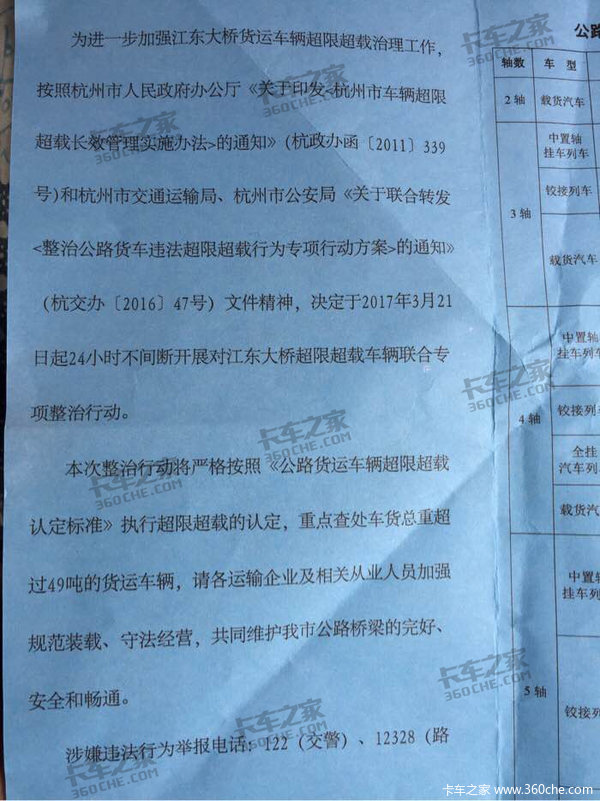 为进一步加强江东大桥货运车辆超限超载治理工作，
按照杭州市人民政府办公厅《关于印发<杭州市车辆超限
超载长效管理实施办法>的通知》（杭政办函〔2011〕339
号)和杭州市交通运输局、杭州市公安局《关于联合转发
<整治公路货车违法超限超载行为专项行动方案>的通知》
（杭交办〔2016〕47号）文件精神，决定于2017年3月21
日起24小时不间断开展对江东大桥超限超载车辆联合专
项整治行动。
本次整治行动将严格按照《公路货运车辆超限超载
认定标准》执行超限超载的认定，重点查处车货总重超
过49吨的货运车辆，请各运输企业及相关从业人员加强
规范装载、守法经营，共同维护我市公路桥梁的完好、
安全和畅通。
涉嫌违法行为举报电话：122（交警）、12328（路
公路
轴数 车 型
2轴 载货汽车
3轴
中置轴
挂车列车
铰接列车
载货汽车
4轴
中置轴
挂车列车
铰接列
全挂
汽车列车
载货汽
5轴
中置
挂车列
铰接列
卡车之家
360CHE.COM
卡车之家
360CHE.COM
卡车之家
360CHE.COM
卡车之家
360CHE.COM
卡车之家
360CHE.COM
卡车之家
360CHE.COM
卡车之家
360CHE.COM
卡车之家
360CHE.COM
卡车之家 www.360che.com